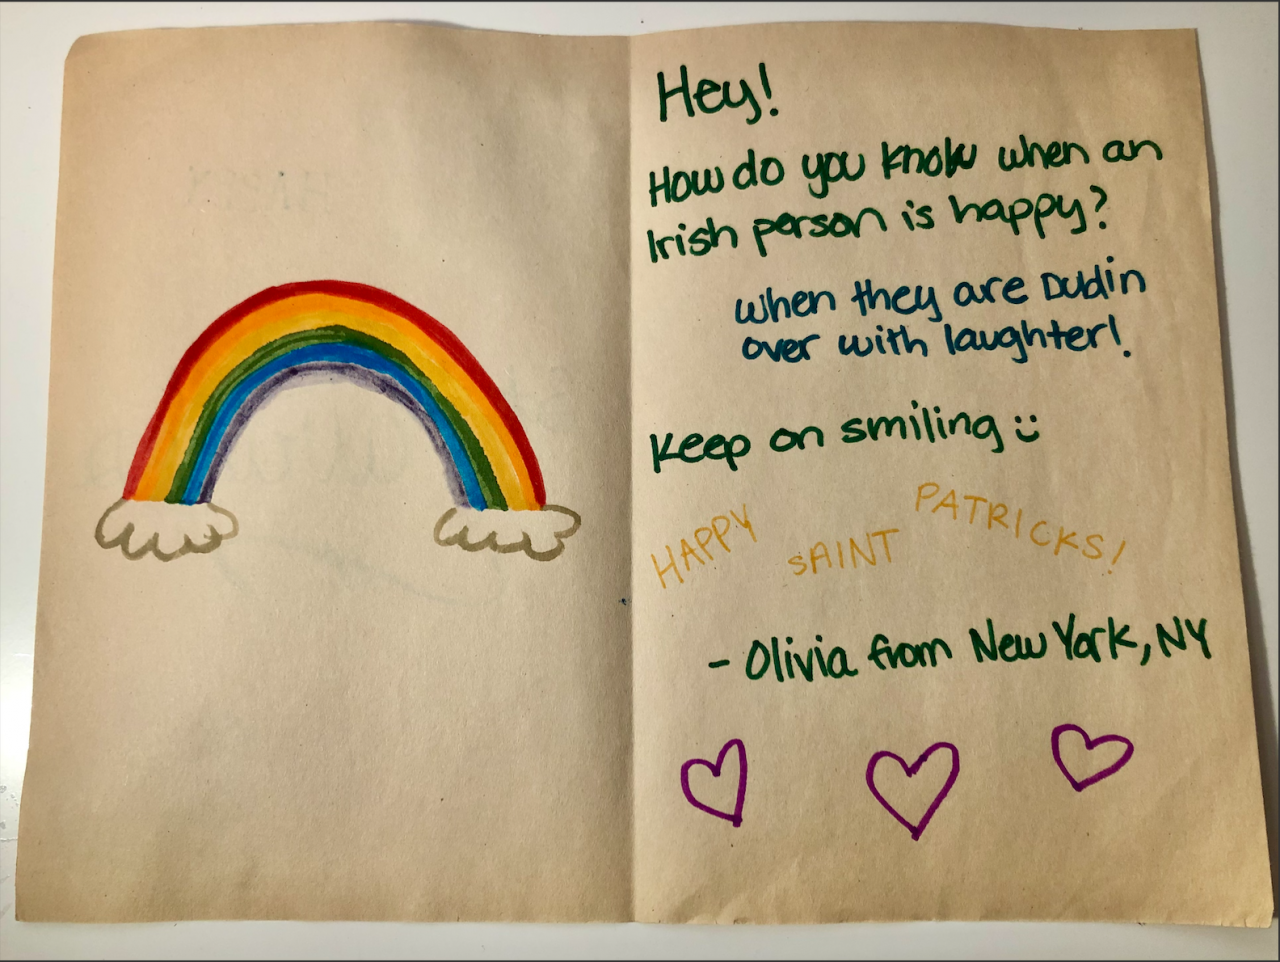 Hey!
How do you know when an
Irish person is happy?
when they are Dublin
over with laughter!
Keep on smiling :)
HAPPY SAINT PATRICKS!
- Olivia from New York, NY